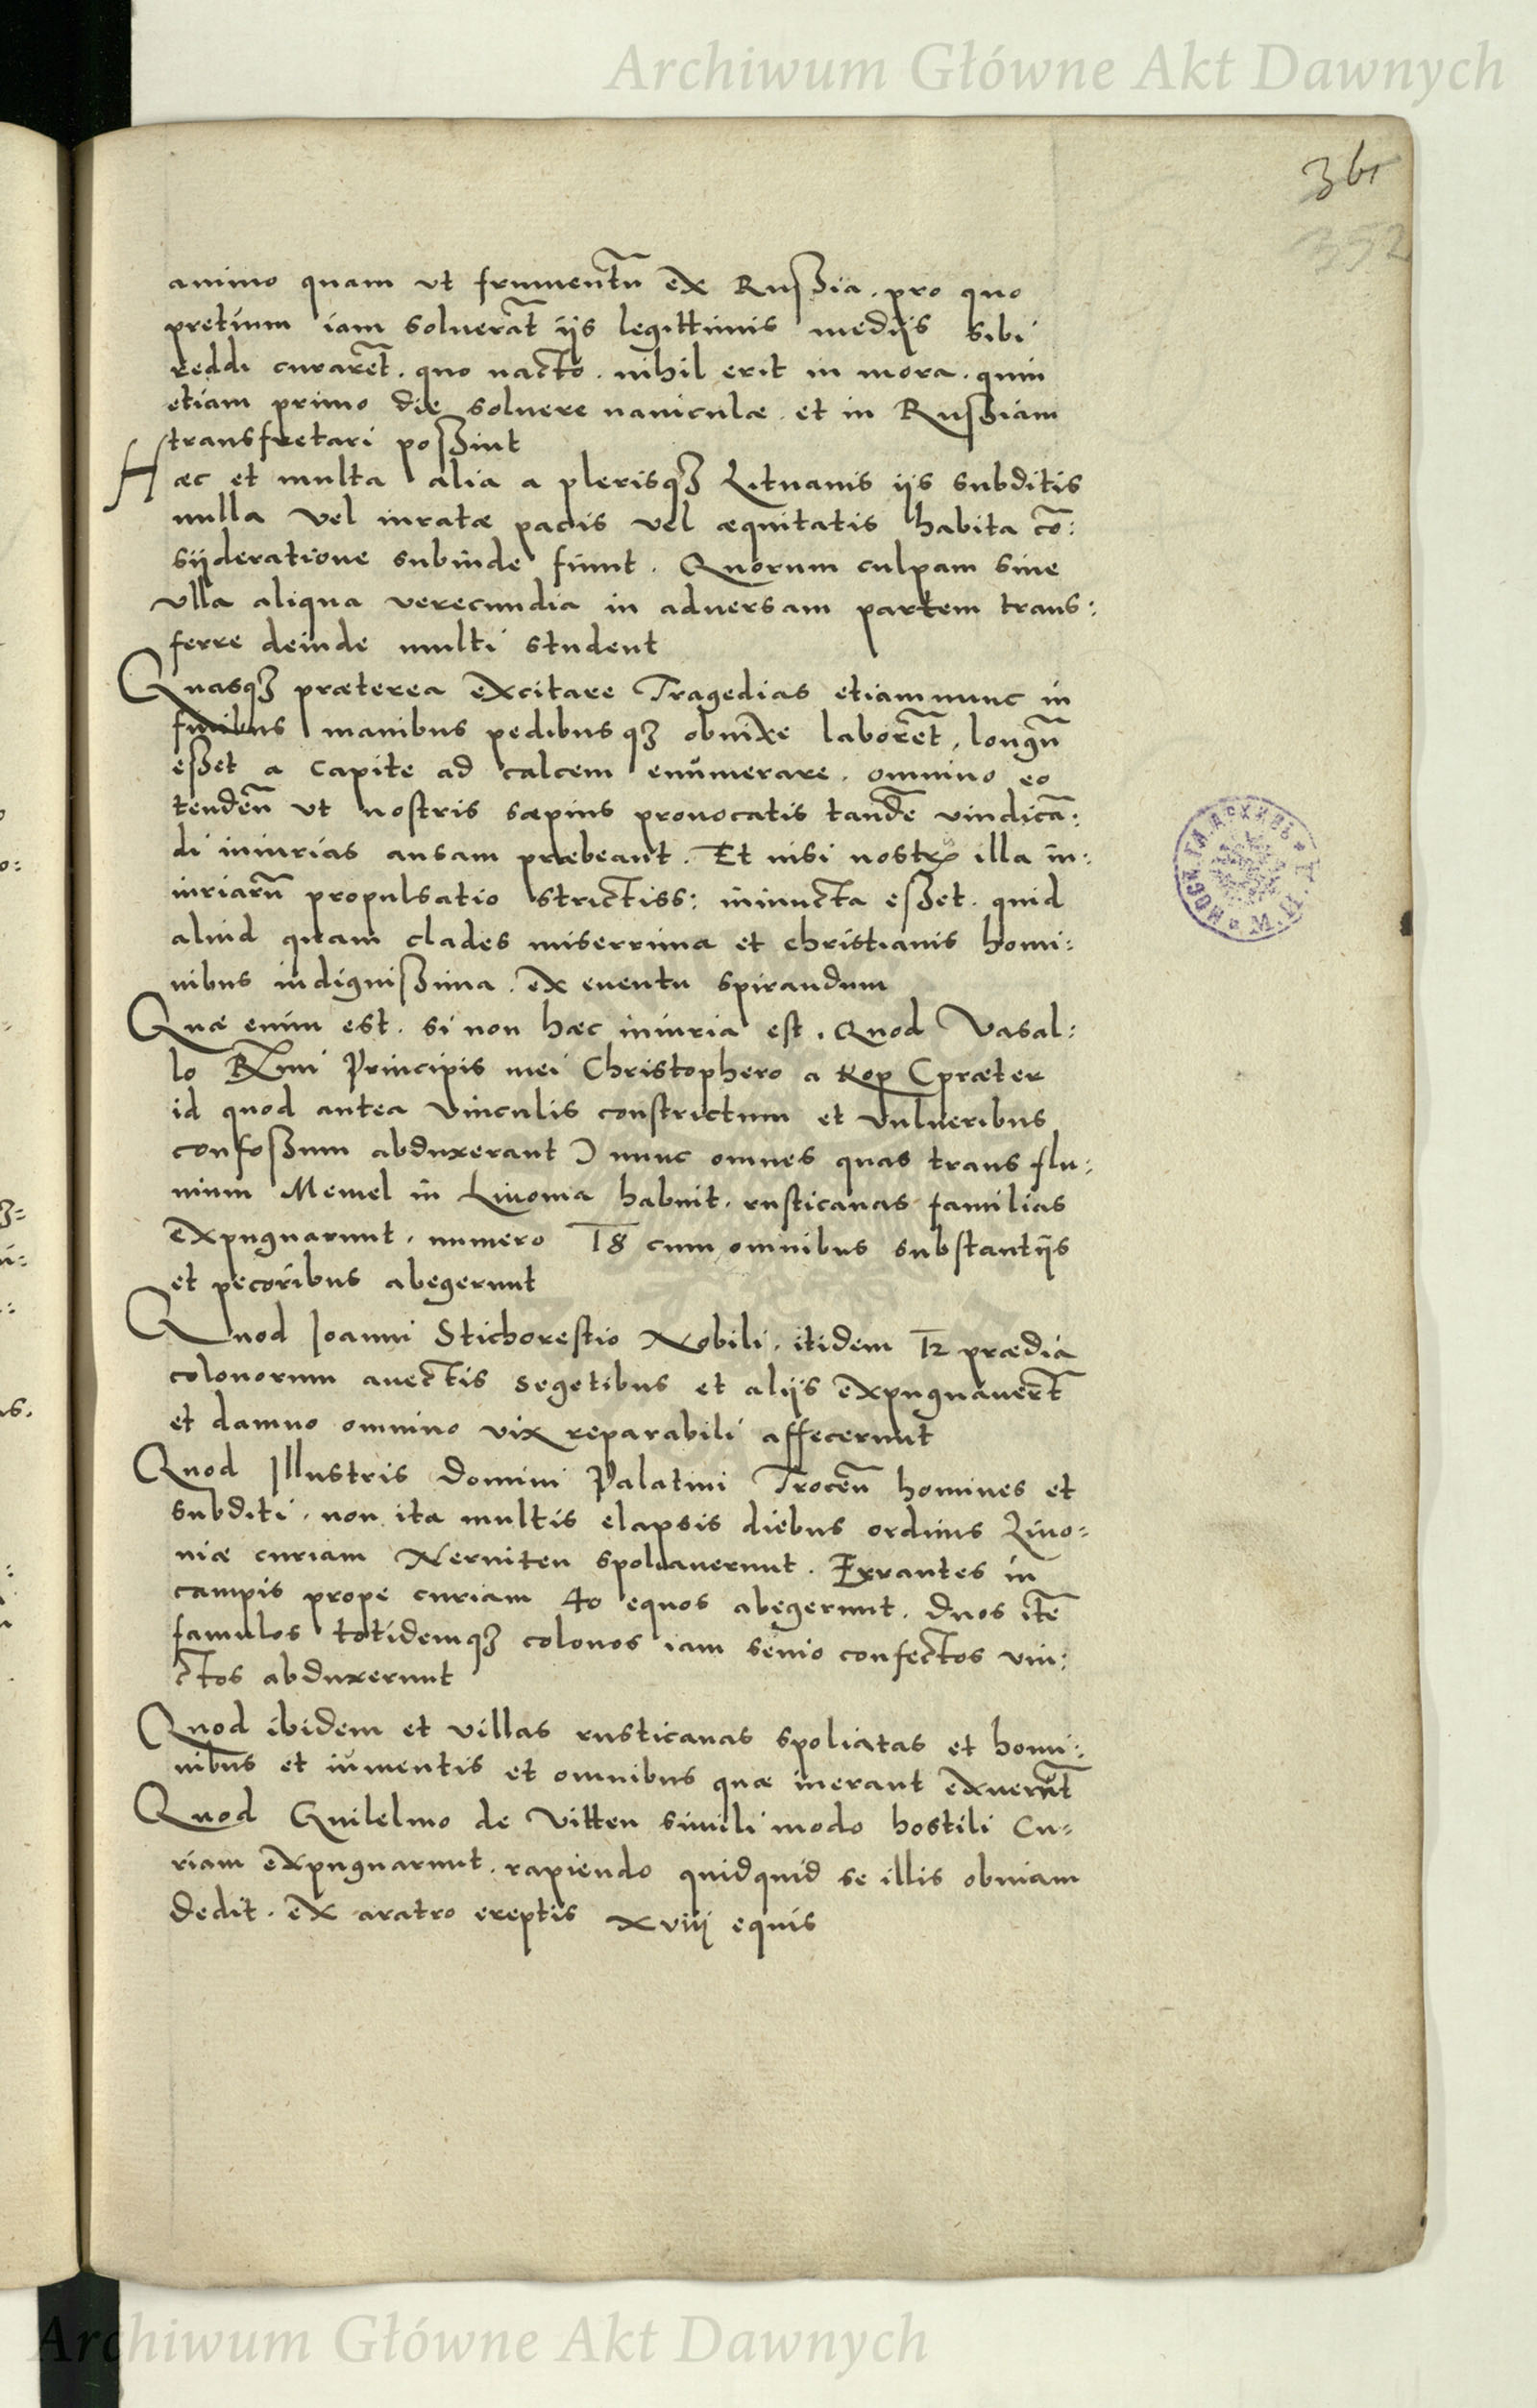 Archiwum Główne Akt Dawnych
361
352
animo quam ut frumentū ex Rußia. pro quo
pretium iam soluerāt ijs legittimis medijs sibi
reddi curarēt. quo nacto. nihil erit in mora. quin
etiam primo die soluere naviculæ. et in Rußiam
transfretari poßint
Hæc et multa alia a plerisqꝫ Lituanis ijs subditis
nulla vel iuratæ pacis vel æquitatis habita cō:
sijderatione subinde fiunt. Quorum culpam sine
vlla aliqua verecundia in aduersam partem trans:
ferre deinde multi student
Quasqꝫ præterea excitare Tragedias etiamnunc in
finibus manibus pedibusqꝫ obnixe laborēt, longū
eßet a capite ad calcem enŭmerare. omnino eo
tendēn ut nostris sæpius prouocatis tandē vindicā:
di iniurias ansam præbeant. Et nisi nostrꝭ illa in:
iuriarū propulsatio strictiss: iniuncta eßet. quid
aliud quam clades miserrima et christianis homi:
nibus indignißima. ex euentu spirandum
Quæ enim est. si non hæc iniuria est. Quod Vasal:
lo R͠mi Principis mei Christophero a Kop (præter
id quod antea vinculis constrictum et vulneribus
confoßum abduxerant) nunc omnes quas trans flu:
uium Memel in Liuonia habuit. rusticanas familias
expugnarunt. numero 18 cum omnibus substantijs
et pecoribus abegerunt
Quod Joanni Stichorestio Nobili. itidem 12 prædia
colonorum auectis segetibus et alijs expugnauerūt
et damno omnino vix reparabili affecerunt
Quod Illustris Domini Palatini Trocēn homines et
subditi. non ita multis elapsis diebus ordinis Liuo=
niæ curiam Nerniten spoliauerunt. Errantes in
campis prope curiam 40 equos abegerunt. Duos itē
famulos totidemqꝫ colonos iam senio confectos vin:
ctos abduxerunt
Quod ibidem et villas rusticanas spoliatas et homi:
nibus et iŭmentis et omnibus quæ inerant exuerūt
Quod Guilelmo de Vitten simili modo hostili Cu=
riam expugnarunt. rapiendo quidquid se illis obuiam
dedit. ex aratro ereptis xviij equis
Archiwum Główne Akt Dawnych